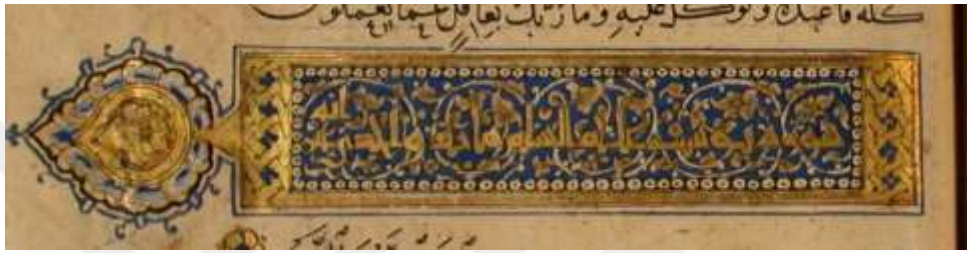 كله فاعبده وتوكل عليه وما ربك بغافل عما تعملون
سورة يوسف عليه السلام مائة